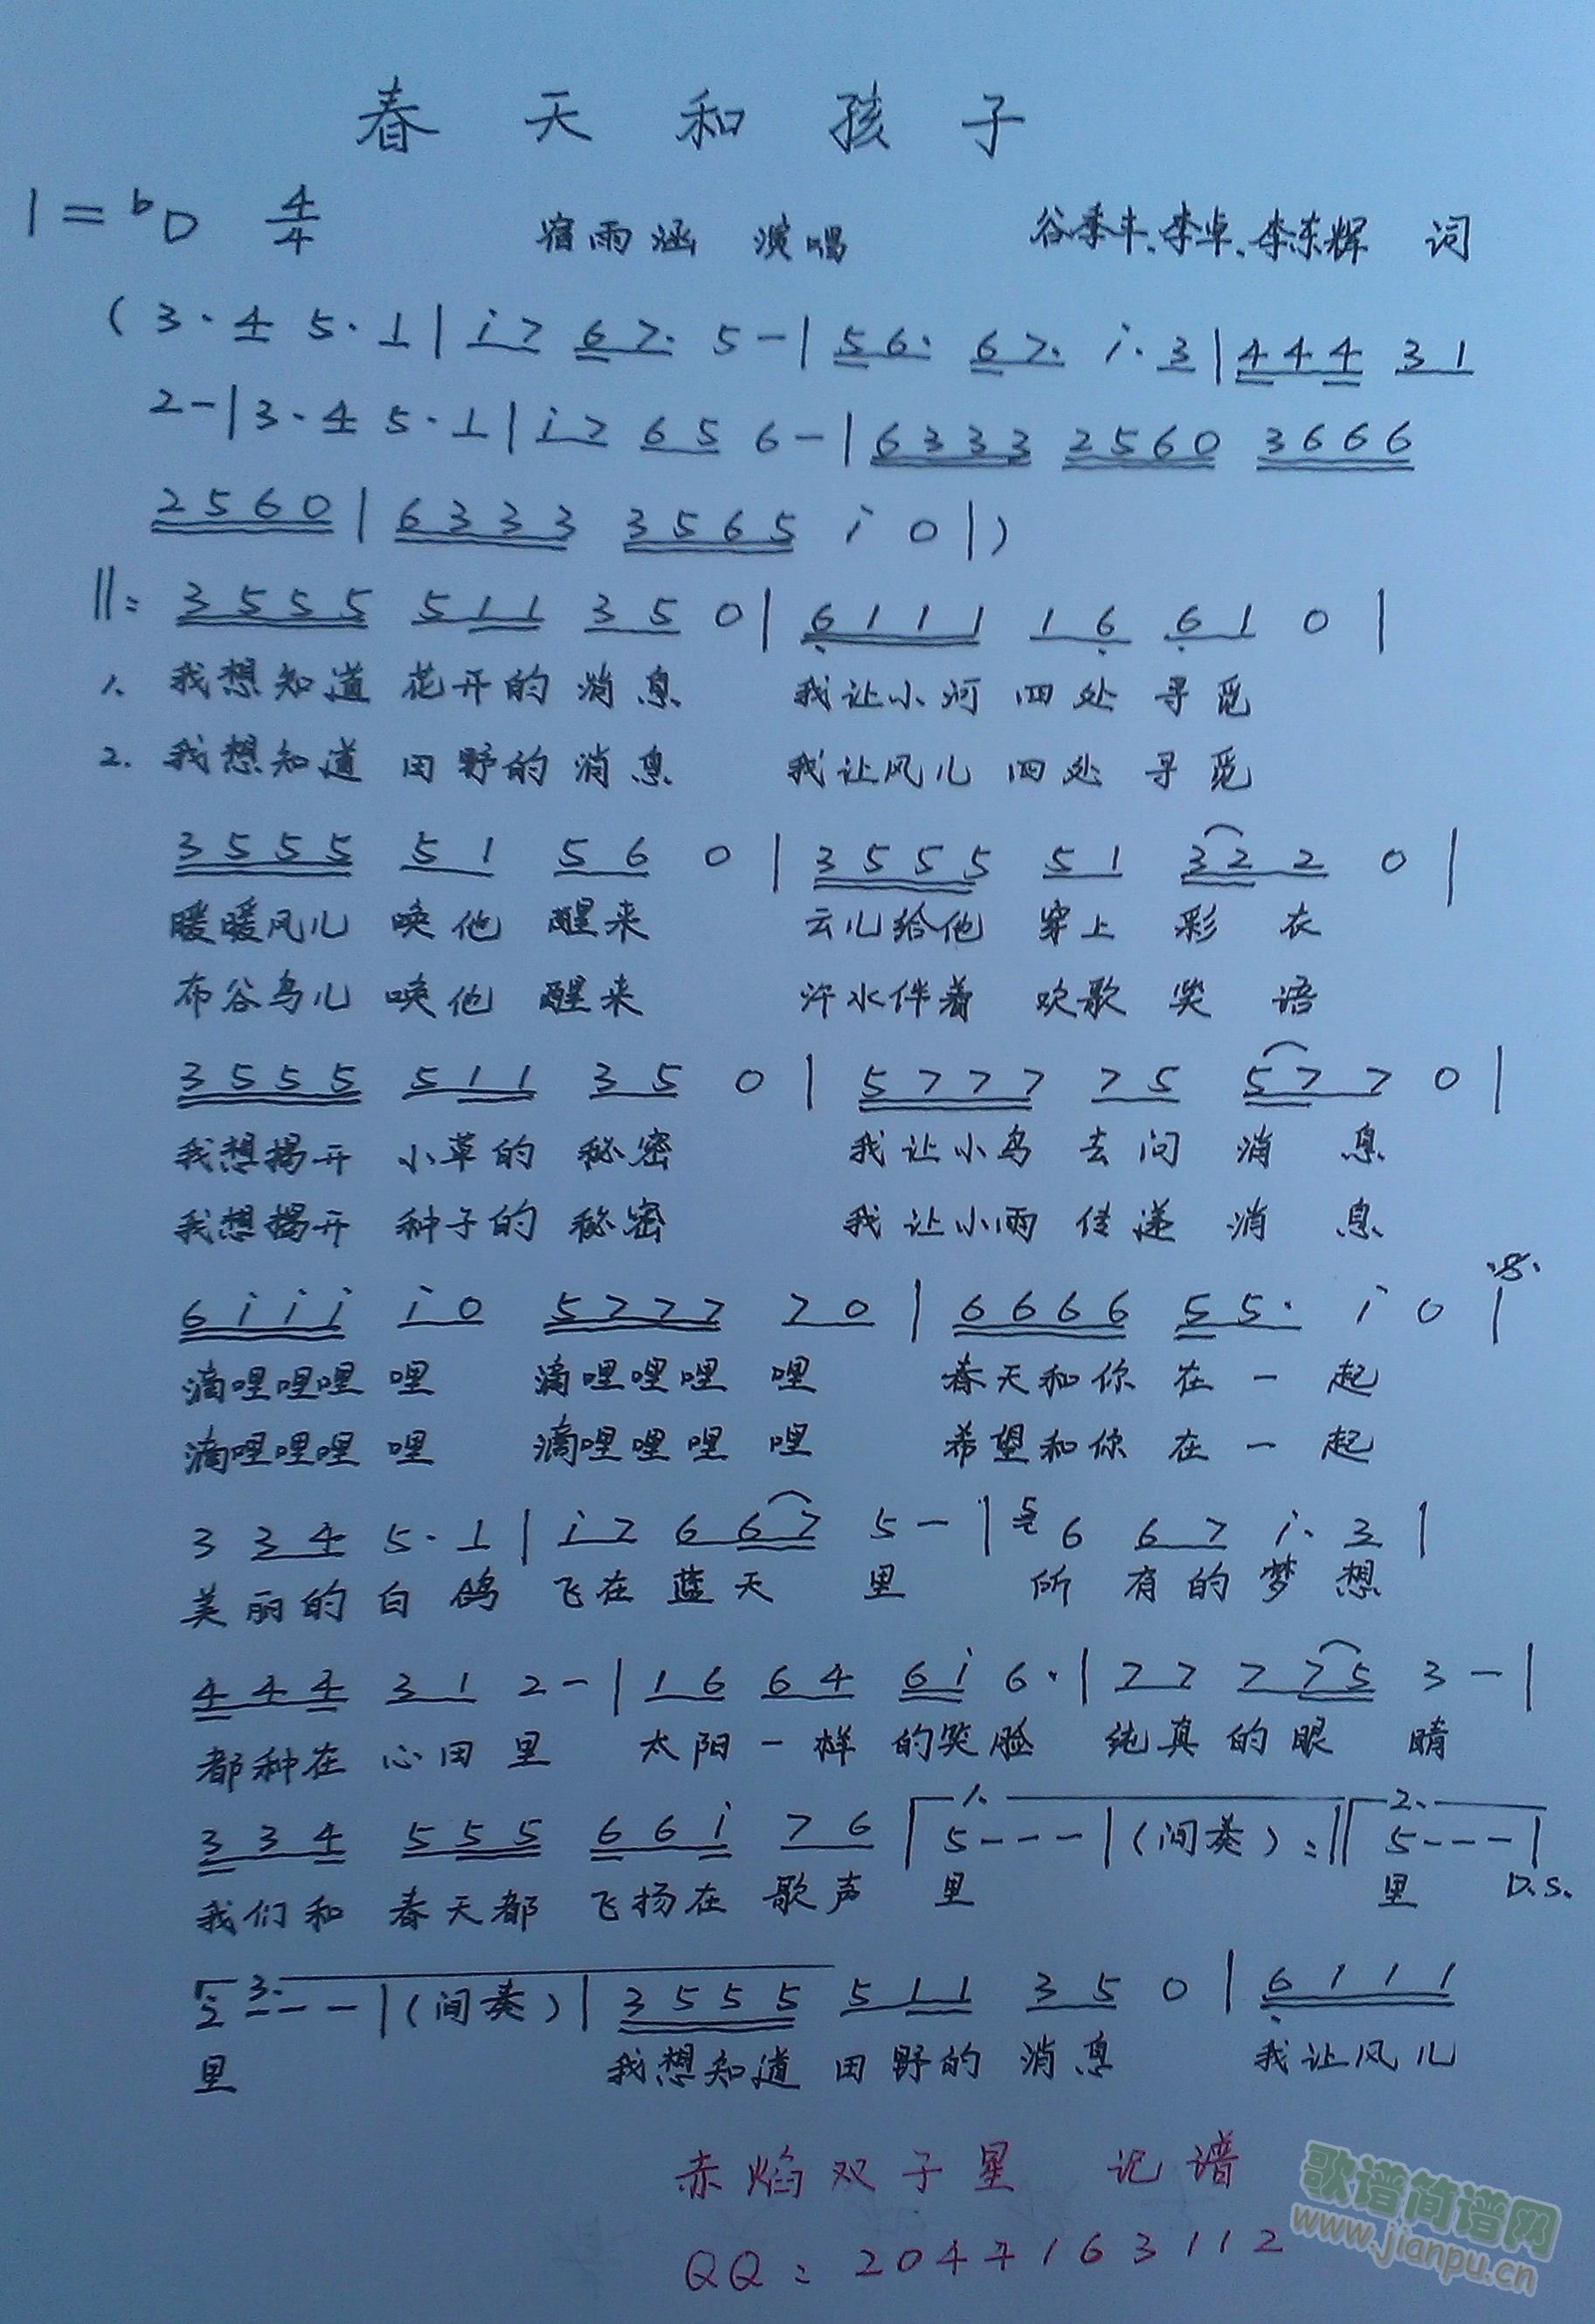 春天和孩子
1=♭D 4/4 宿雨涵 演唱 谷季丰、李卓、李东辉 词
(3·4 5·1|i7 67· 5-|56· 67· i·3|444 31
2-|3·4 5·1|i7 65 6-|6333 2560 3666
2560|6333 3565 i 0|)
||: 3555 511 35 0|6111 16 61 0|
1. 我想知道 花开的 消息 我让小河 四处 寻觅
2. 我想知道 田野的 消息 我让风儿 四处 寻觅
3555 51 56 0|3555 51 322 0|
暖暖风儿 唤他 醒来 云儿给他 穿上 彩衣
布谷鸟儿 唤他 醒来 汗水伴着 欢歌 笑语
3555 511 35 0|5777 75 577 0|
我想揭开 小草的 秘密 我让小鸟 去问 消息
我想揭开 种子的 秘密 我让小雨 传递 消息
6iii i0 5777 70|6666 55· i 0|
滴哩哩哩 哩 滴哩哩哩 哩 春天和你 在一起
滴哩哩哩 哩 滴哩哩哩 哩 希望和你 在一起
3 34 5·1|i7 667 5-|5 6 67 i·3|
美丽的白鸽 飞在蓝天 里 所有的梦想
444 31 2-|16 64 6i 6·|77 775 3-|
都种在 心田里 太阳一样 的笑脸 纯真的眼 睛
334 555 66i 76 1. 5---|(间奏):|| 2. 5---|
我们和 春天都 飞扬在 歌声 里 里 D.S.
3. 2---|(间奏)|3555 511 35 0|6111
里 我想知道 田野的 消息 我让风儿
赤焰双子星 记谱
QQ:2047163112
歌谱简谱网
www.jianpu.cn